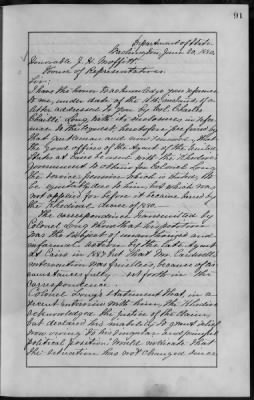 91
Department of State
Washington, June 20, 188
Honorable J. H. Moffitt,
House of Representatives.
Sir:
I have the honor to acknowledge your reference
to me, under date of the instant, of a
letter addressed to you by Col. Charles
Chaillé Long, with its inclosures in refer-
ence to the request heretofore preferred by
that gentleman and now renewed, that
the good offices of the Agent of the United
States at Cairo be used with the Khedive's
Government to obtain for Colonel Long
the service pension which is stated to
be equitably due to him, but which was
not applied for before it became barred by
the Khedivial decree of 1880.
The correspondence transmitted by
Colonel Long shows that his petition
was the subject of
unofficial action by the late Agent
at Cairo in 1883 but that Mr. Cardwell's
intervention was fruitless, because of cir-
cumstances fully set forth in the
correspondence.
Colonel Long's statement that, in a
recent interview with him, the Khedive
acknowledged the justice of the claim
but declared his inability to grant relief
now owing to his "singular and painful
political position" would indicate that
the situation has not changed since